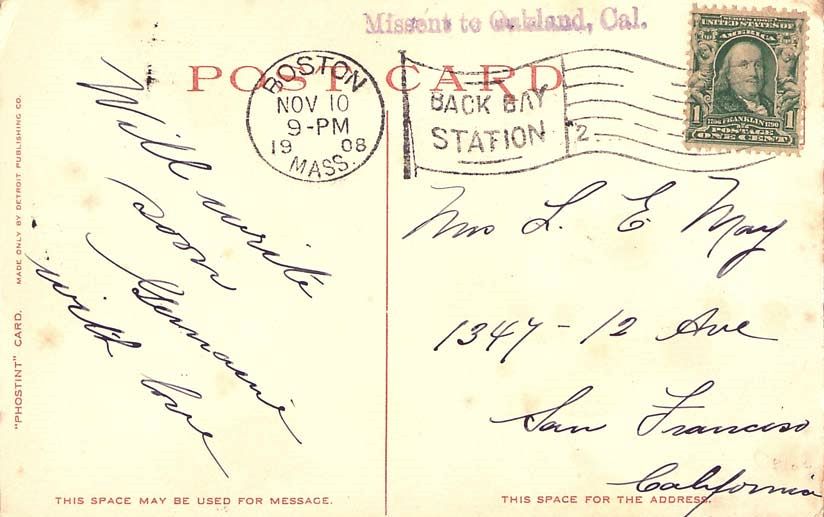 Missent to Oakland, Cal.
POST CARD
BOSTON
NOV 10
9-PM
19 08
MASS.
BACK BAY
STATION
2
SERIES 1902
UNITED STATES OF
AMERICA
1706 FRANKLIN 1790
1 POSTAGE 1
ONE CENT
Will write
soon
Germaine
with love
Mrs L. E. May
1347-12 Ave
San Francisco
California
"PHOSTINT" CARD. MADE ONLY BY DETROIT PUBLISHING CO.
THIS SPACE MAY BE USED FOR MESSAGE.
THIS SPACE FOR THE ADDRESS.